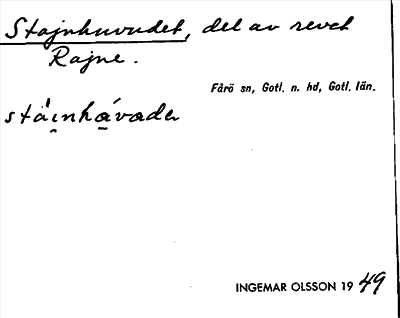 Stajnhuvudet, del av revet
Rajne.
Fårö sn, Gotl. n. hd, Gotl. län.
stáinhávade
INGEMAR OLSSON 19 49